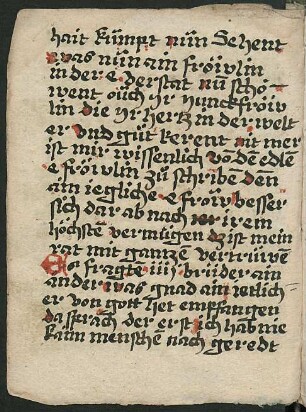 hait kumpt nun Sehent
was nun ain fröwlin
in der e der stat nu schö
went ouch ir junckfröw
lin die ir hertz in der welt
er vnd gut kerent nit mer
ist mir wissenlich vo dē edlē
e fröwlin zu schribē dēn
ain iegliche e fröw besser
sich dar ab nach irem
höchstē vermügen dz ist mein
rat mit gantzē vertruwē
Es fragtē iiij brüder ain
ander was gnad ain ietlich
er von gott het empfangen
da sprach der erst ich hab nie
kain menschē nach geredt